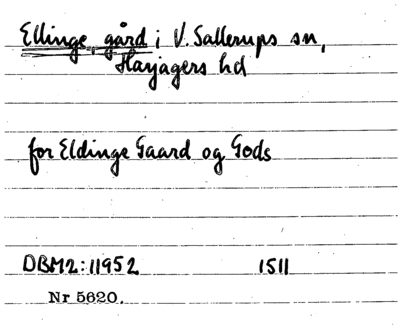 Ellinge, gård i V. Sallerups sn,
Harjagers hd
for Eldinge Gaard og Gods
DBM2:11952 1511
Nr 5620.